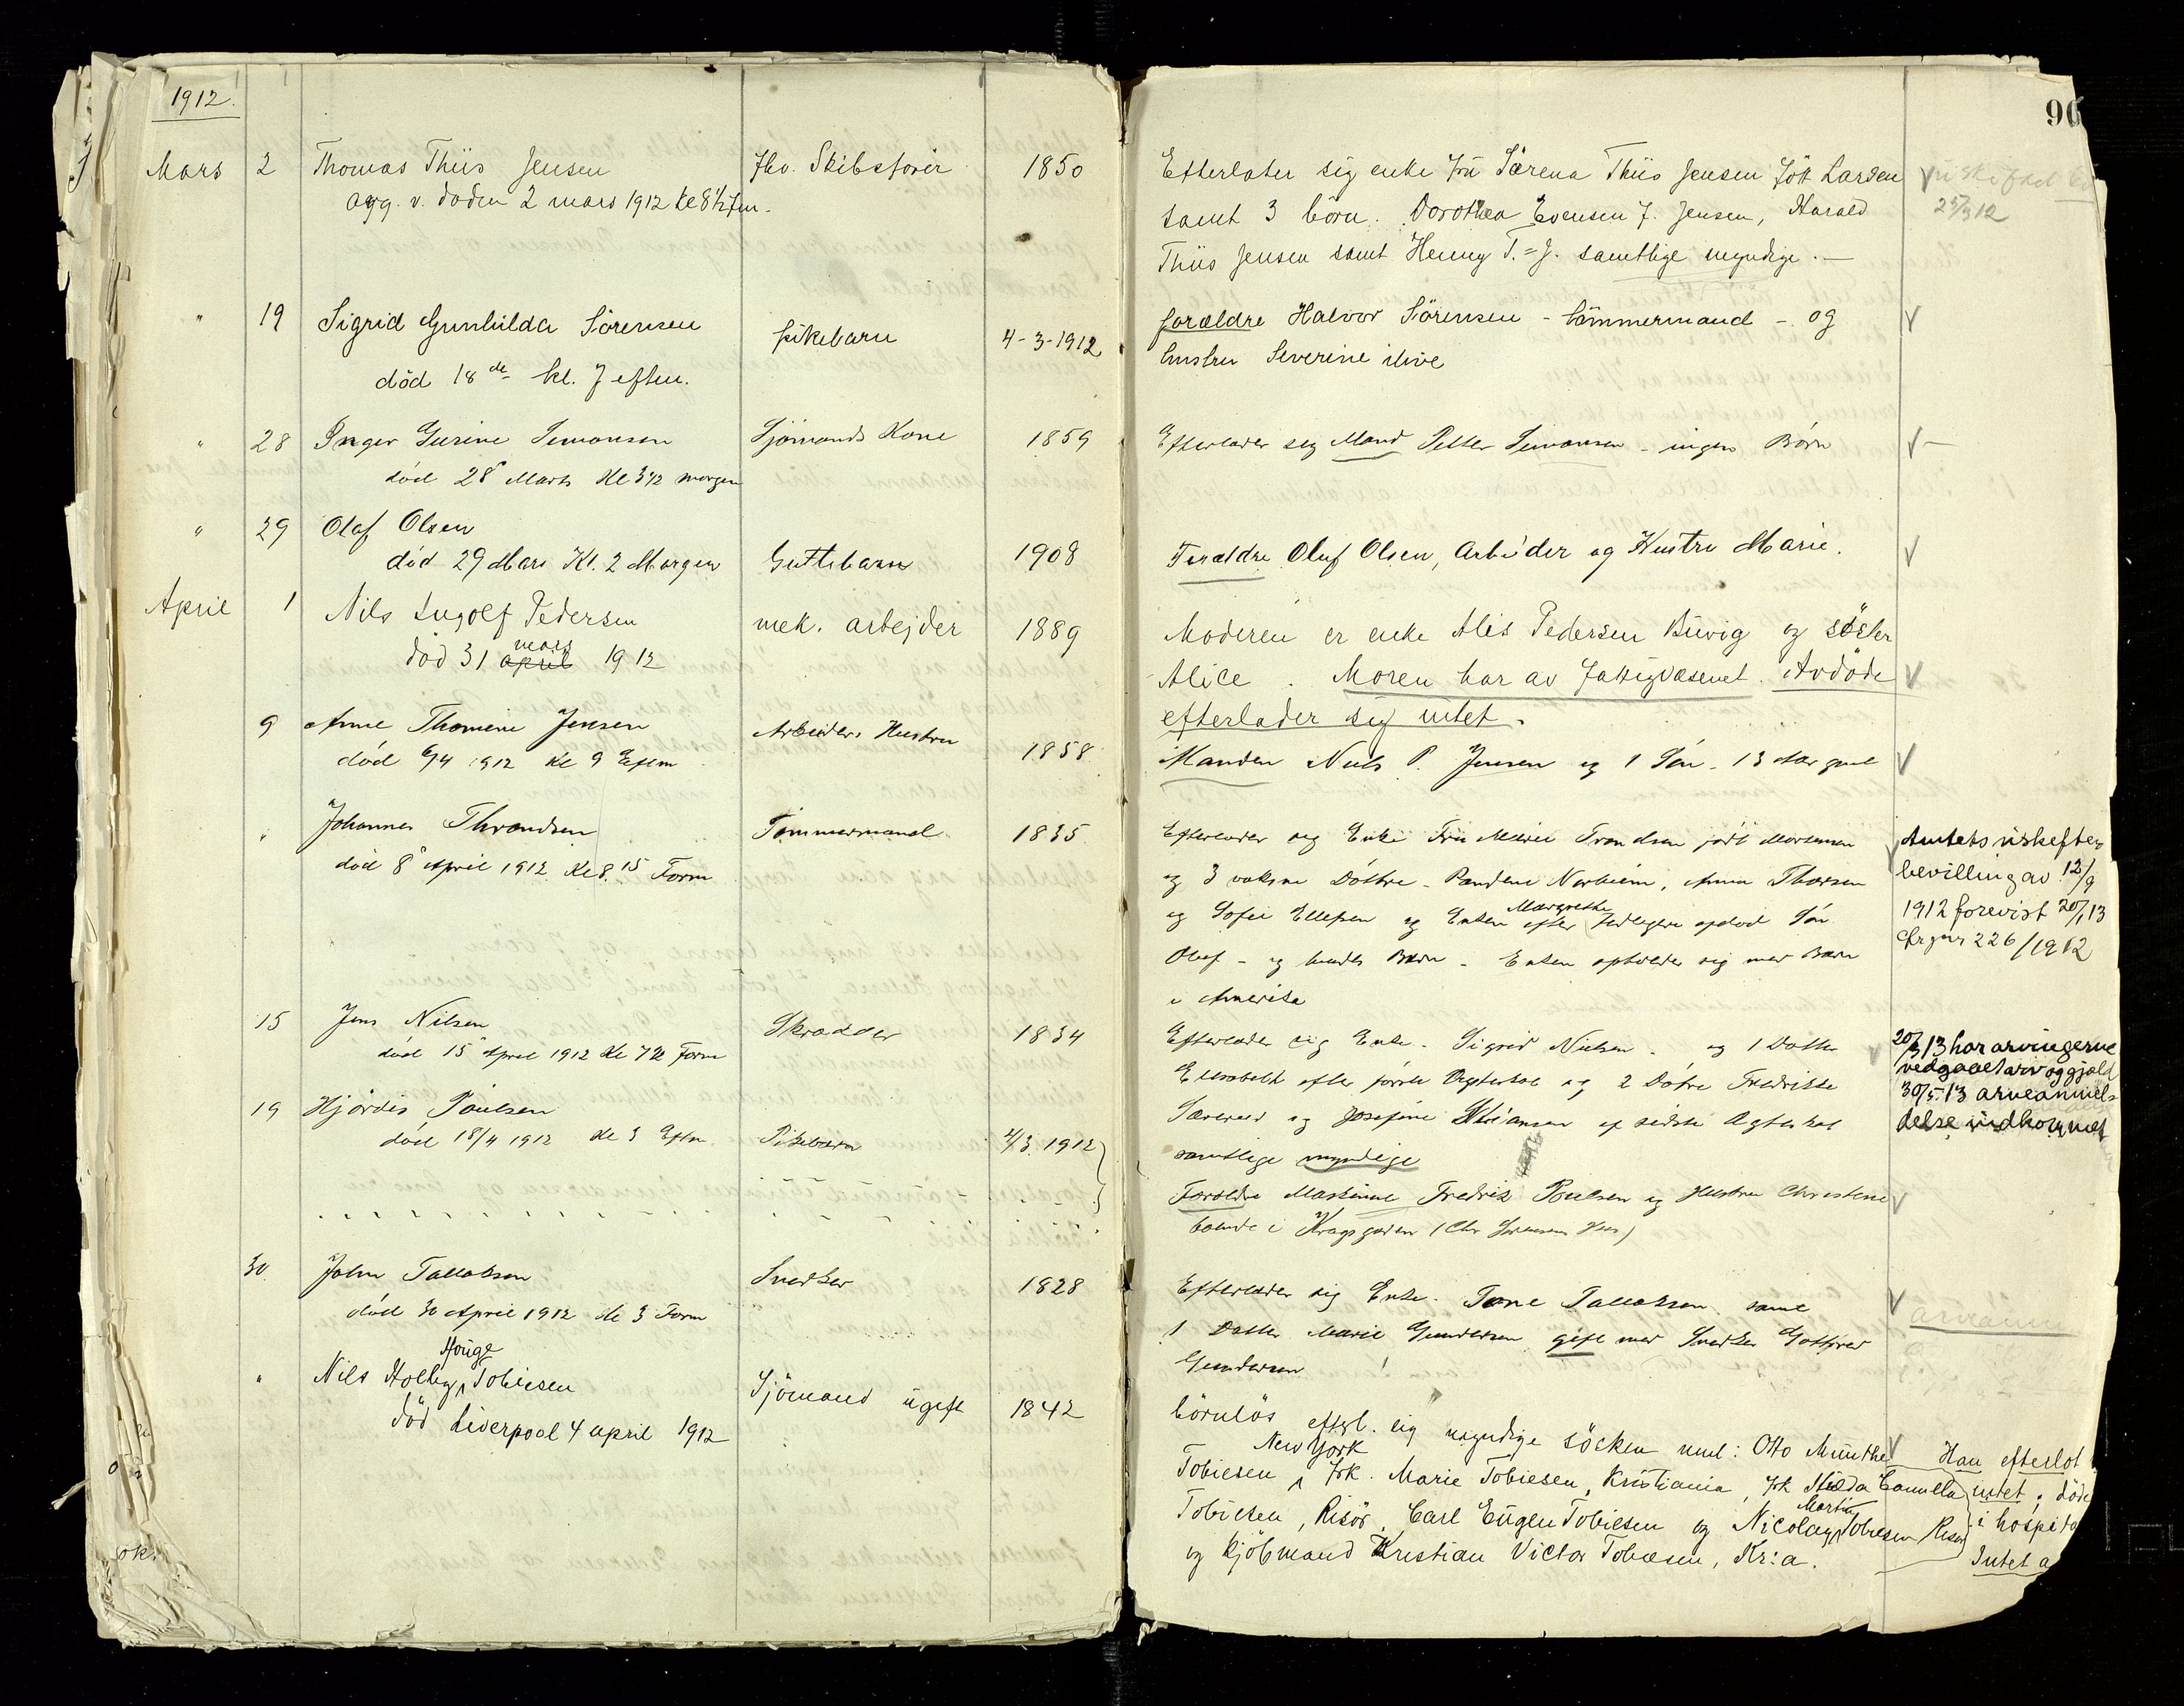 1912.
96
Mars 2 Thomas Thiis Jensen fhv. Skibsfører 1850 Efterlater sig enke fru Særena Thiis Jensen født Larsen
avg. v. døden 2 mars 1912 kl 8½ fm. samt 3 børn. Dorothea Evensen f. Jensen, Harald
25/3 12
Thiis Jensen samt Henny T.=J. samtlige myndige. —
" 19 Sigrid Gunhilda Sörensen pikebarn 4-3-1912 forældre Halvor Sörensen - tömmermand - og
död 18de kl. 7 eftm. hustru Severine ilive
" 28 Inger Gurine Simonsen Sjömands Kone 1859 Efterlader sig Mand Petter Simonsen - ingen Børn
død 28 Marts Kl 3½ morgen
" 29 Olaf Olsen
død 29 Mars Kl. 2 Morgen Guttebarn 1908 Forældre Oluf Olsen, Arbeider og Hustru Marie.
April 1 Nils Ingolf Pedersen mek. arbejder 1889 Moderen er enke Alis Pedersen Buvig og söster
mars
Död 31 april 1912 Alice . Moren har av fattigvæsenet. Avdöde
efterlader sig intet.
9 Anne Thomine Jensen Arbeiders Hustru 1858 Manden Niels P. Jensen og 1 Søn - 13 Aar gml
død 6/4 1912 Kl 9 Eftm
" Johannes Throndsen Tømmermand 1835 Efterlader sig Enke Fru Marie Trondsen født Mortensen
død 8 April 1912 Kl 8.15 Form og 3 voksne Døttre - Pandine Norheim, Anna Thorsen
Margrethe
og Sofie Ellefsen og Enken efter tidligere afdød Søn
Oluf - og hendes Børn - Enken opholder sig med Børn
i Amerika
Amtets uskifte
bevilling av 12/9
1912 forevist 20/1 13
226/1912
15 Jens Nilsen Skrædder 1834 Efterlader sig Enke - Sigrid Nielsen - og 1 Datter
død 15 April 1912 Kl 7½ Form Elisabeth efter første Ægteskab og 2 Døtre Fredrikke
og Josefine af sidste Ægteskab
samtlige myndige
20/3 13 har arvingerne
vedgaaet arv og gjæld
30/5 13 arveanmel-
delse indkommet
19 Hjørdis Paulsen
død 18/4 1912 Kl 3 Eftm Pikebarn 4/3 1912
Forældre Maskinist Fredrik Poulsen og Hustru Christine
boende i Kragsgaden (Chr Sørensens Hus)
30 John Tallaksen Snedker 1828 Efterlader sig Enke - Tone Tallaksen samt
død 30 April 1912 Kl 3 Form 1 Datter Marie Gundersen gift med Snedker Gotfred
Gundersen
Houge
" Nils Holby Tobiesen Sjömand ugift 1842 börnlös efterl. sig myndige söcken nml: Otto Munthe
död Liverpool 4 april 1912
New York
Tobiesen frk. Marie Tobiesen, Kristiania, frk Hilda Camilla
Martin
Tobiesen, Risör, Carl Eugen Tobiesen og Nicolay Tobiesen Risör
og Kjöbmand Kristian Victor Tobiesen, Kr:a.
Han efterlot
intet; döde
i hospita
Intet a